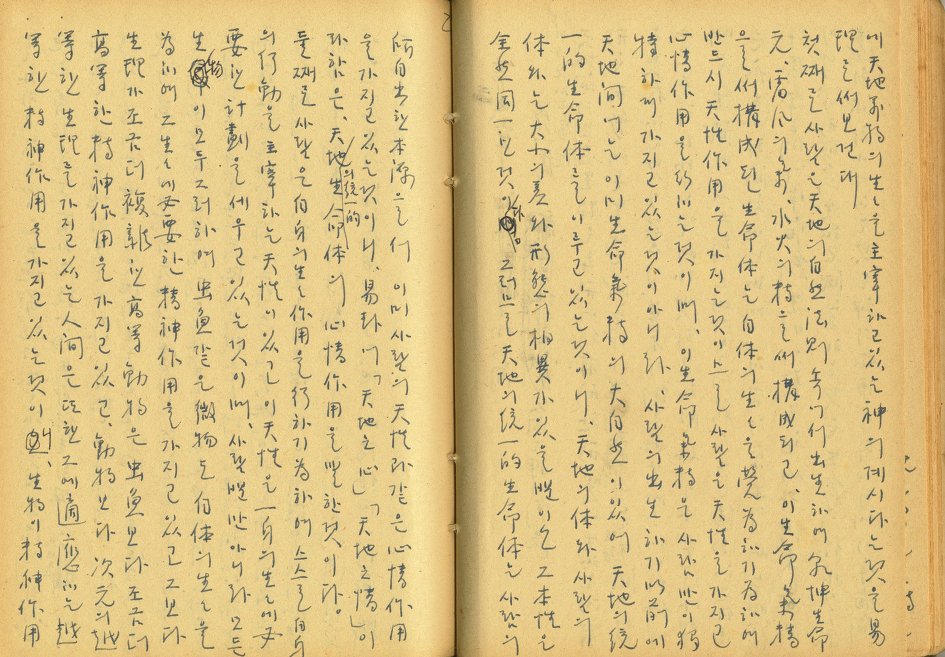 에 天地萬物의 生生을 主宰하고 있는 神의 계시다는 것을 易
理로 써 보건대
첫째로 사람은 天地의 自然法則 속에서 出生하며 乾坤生命
元, 雷風의 氣, 水火의 精으로써 構成되고, 이 生命氣精
으로써 構成된 生命体는 自体의 生生을 營為하기 為하여
반드시 天性作用을 가지는 것이므로 사람은 天性을 가지고
心情作用을 行하는 것이며, 이 生命氣精은 사람만이 獨
特하게 가지고 있는 것이 아니라, 사람의 出生하기 以前에
天地間에는 이미 生命氣精의 大自然이 있어 天地의 統
一的 生命体를 이루고 있는 것이니, 天地의 体와 사람의
体와는 大小의 差와 形態의 相異가 있을 뿐이고 그 本性은
全然 同一한 것이다. 그러므로 天地의 統一的 生命体는 사람의
所自出한 本源으로서 이미 사람의 天性과 같은 心情作用
을 가지고 있는 것이니, 易卦에「天地之心」「天地之情」이
라 함은, 天地의 統一的 生命体의 心情作用을 말한 것이다.
둘째로 사람은 自身의 生生作用을 行하기 為하여 스스로 自身
의 行動을 主宰하는 天性이 있고 이 天性은 一身의 生生에 必
要한 計劃을 세우고 있는 것이며, 사람뿐만 아니라 모든
生物이 모두 그러하여 虫魚 같은 微物도 自体의 生生을
為하여 그 生生에 必要한 精神作用을 가지고 있고 그보다
生理가 조금 더 複雜한 高等動物은 虫魚보다 조금 더
高等한 精神作用을 가지고 있고, 動物보다 次元의 越
等한 生理를 가지고 있는 人间은 또한 그에 適應하는 越
等한 精神作用을 가지고 있는 것이니, 生物이 精神作用